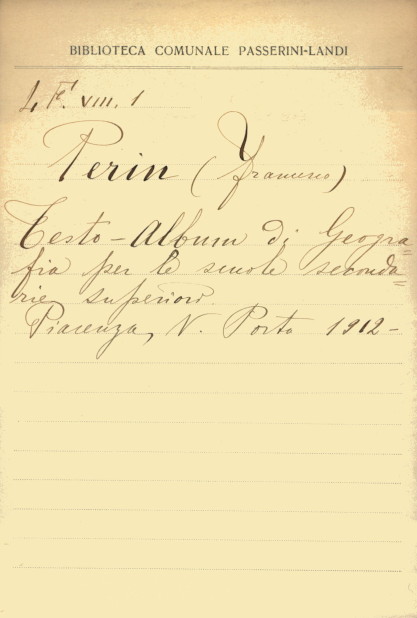 BIBLIOTECA COMUNALE PASSERINI-LANDI
4 F. VIII. 1
Perin (Francesco)
Testo-Album di Geogra=
fia per le scuole seconda=
rie superiori.
Piacenza, N. Porta 1912-